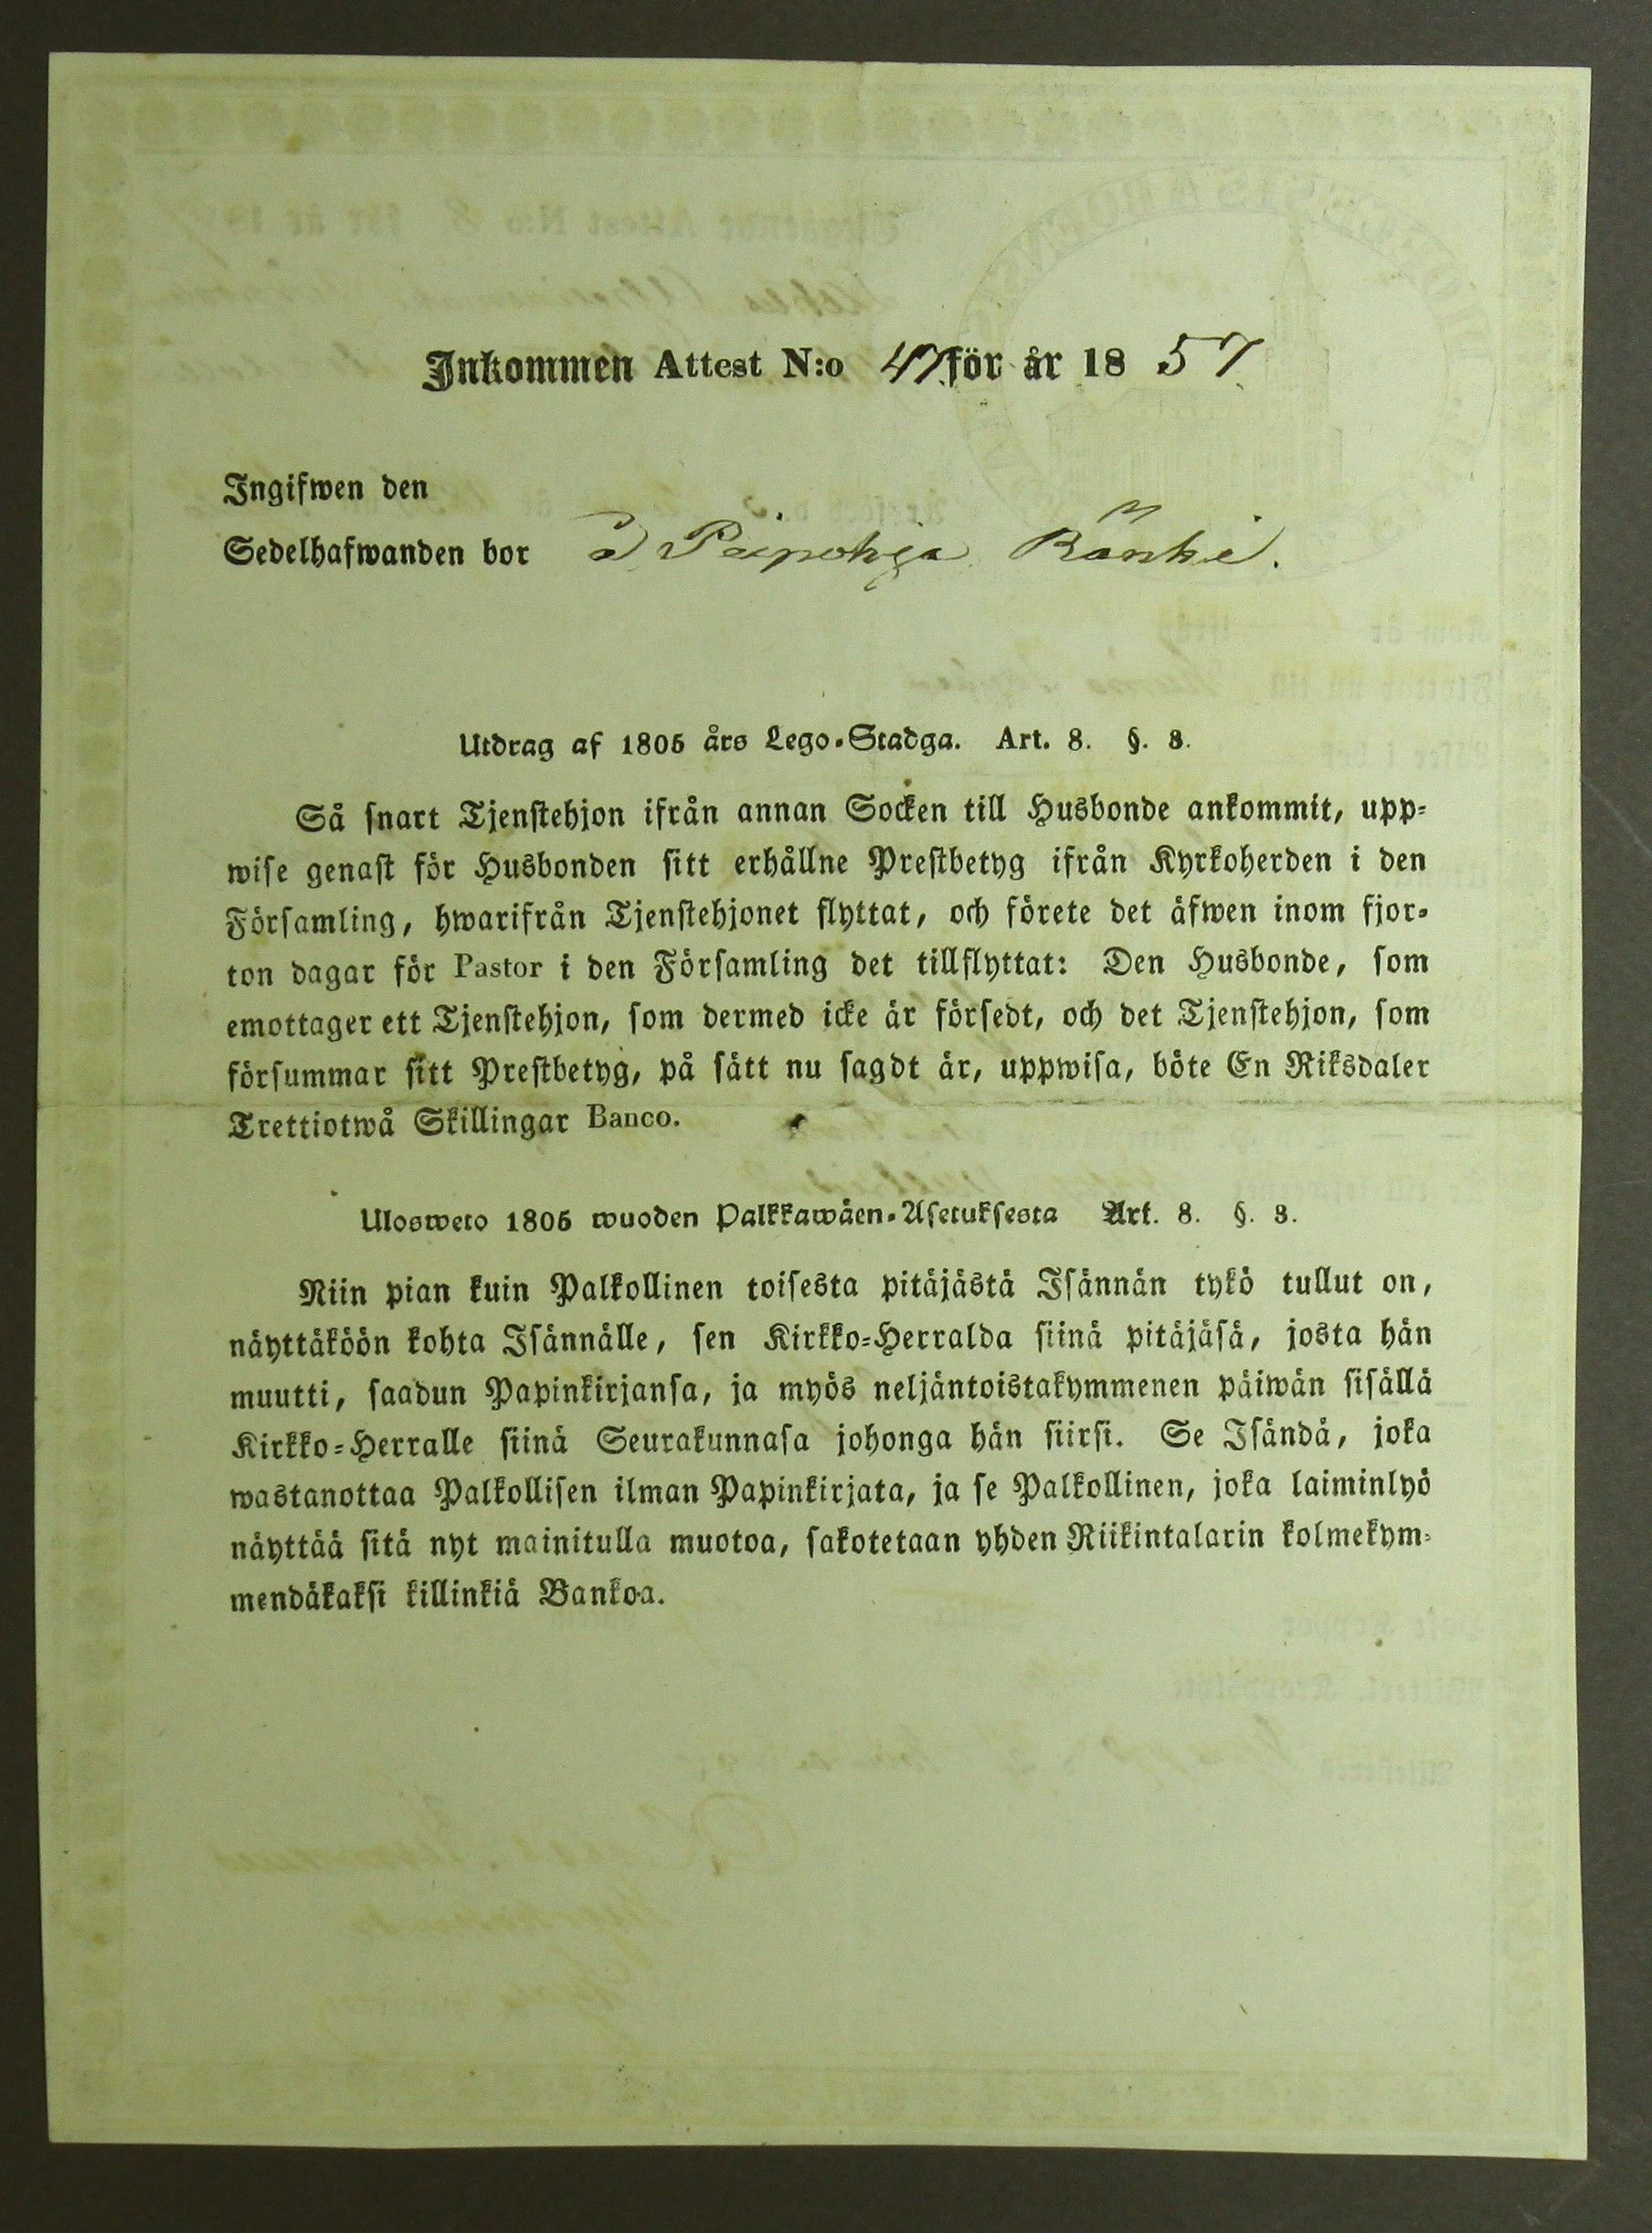 Inkommen Attest N:o 47 för år 1857
Ingifwen den
Sedelhafwanden bor å Peipohja Ränki.
Utdrag af 1805 års Lego-Stadga. Art. 8. §. 3.
Så snart Tjenstehjon ifrån annan Socken till Husbonde ankommit, upp-
wise genast för Husbonden sitt erhållne Prestbetyg ifrån Kyrkoherden i den
Församling, hwarifrån Tjenstehjonet flyttat, och förete det äfwen inom fjor-
ton dagar för Pastor i den Församling det tillflyttat: Den Husbonde, som
emottager ett Tjenstehjon, som dermed icke är försedt, och det Tjenstehjon, som
försummar sitt Prestbetyg, på sätt nu sagdt är, uppwisa, böte En Riksdaler
Trettiotwå Skillingar Banco.
Ulosweto 1805 wuoden Palkkawäen-Asetuksesta Art. 8. §. 3.
Niin pian kuin Palkollinen toisesta pitäjästä Isännän tykö tullut on,
näyttäköön kohta Isännälle, sen Kirkko-Herralda siinä pitäjäsä, josta hän
muutti, saadun Papinkirjansa, ja myös neljäntoistakymmenen päiwän sisällä
Kirkko-Herralle siinä Seurakunnasa johonga hän siirsi. Se Isändä, joka
wastanottaa Palkollisen ilman Papinkirjata, ja se Palkollinen, joka laiminlyö
näyttää sitä nyt mainitulla muotoa, sakotetaan yhden Riikintalarin kolmekym-
mendäkaksi killinkiä Bankoa.